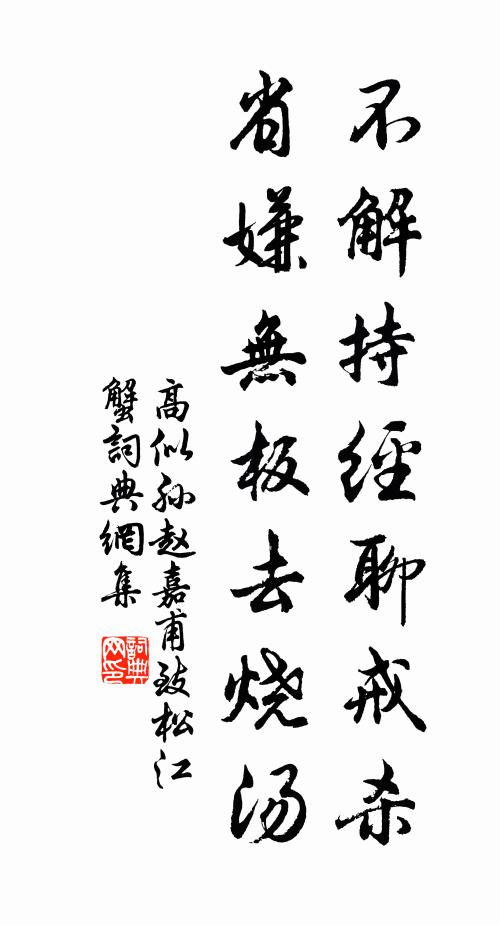 不解持經聊戒杀
省嫌無板去烧汤
高似孙赵嘉甫致松江
蟹詞典網集
詞典網印